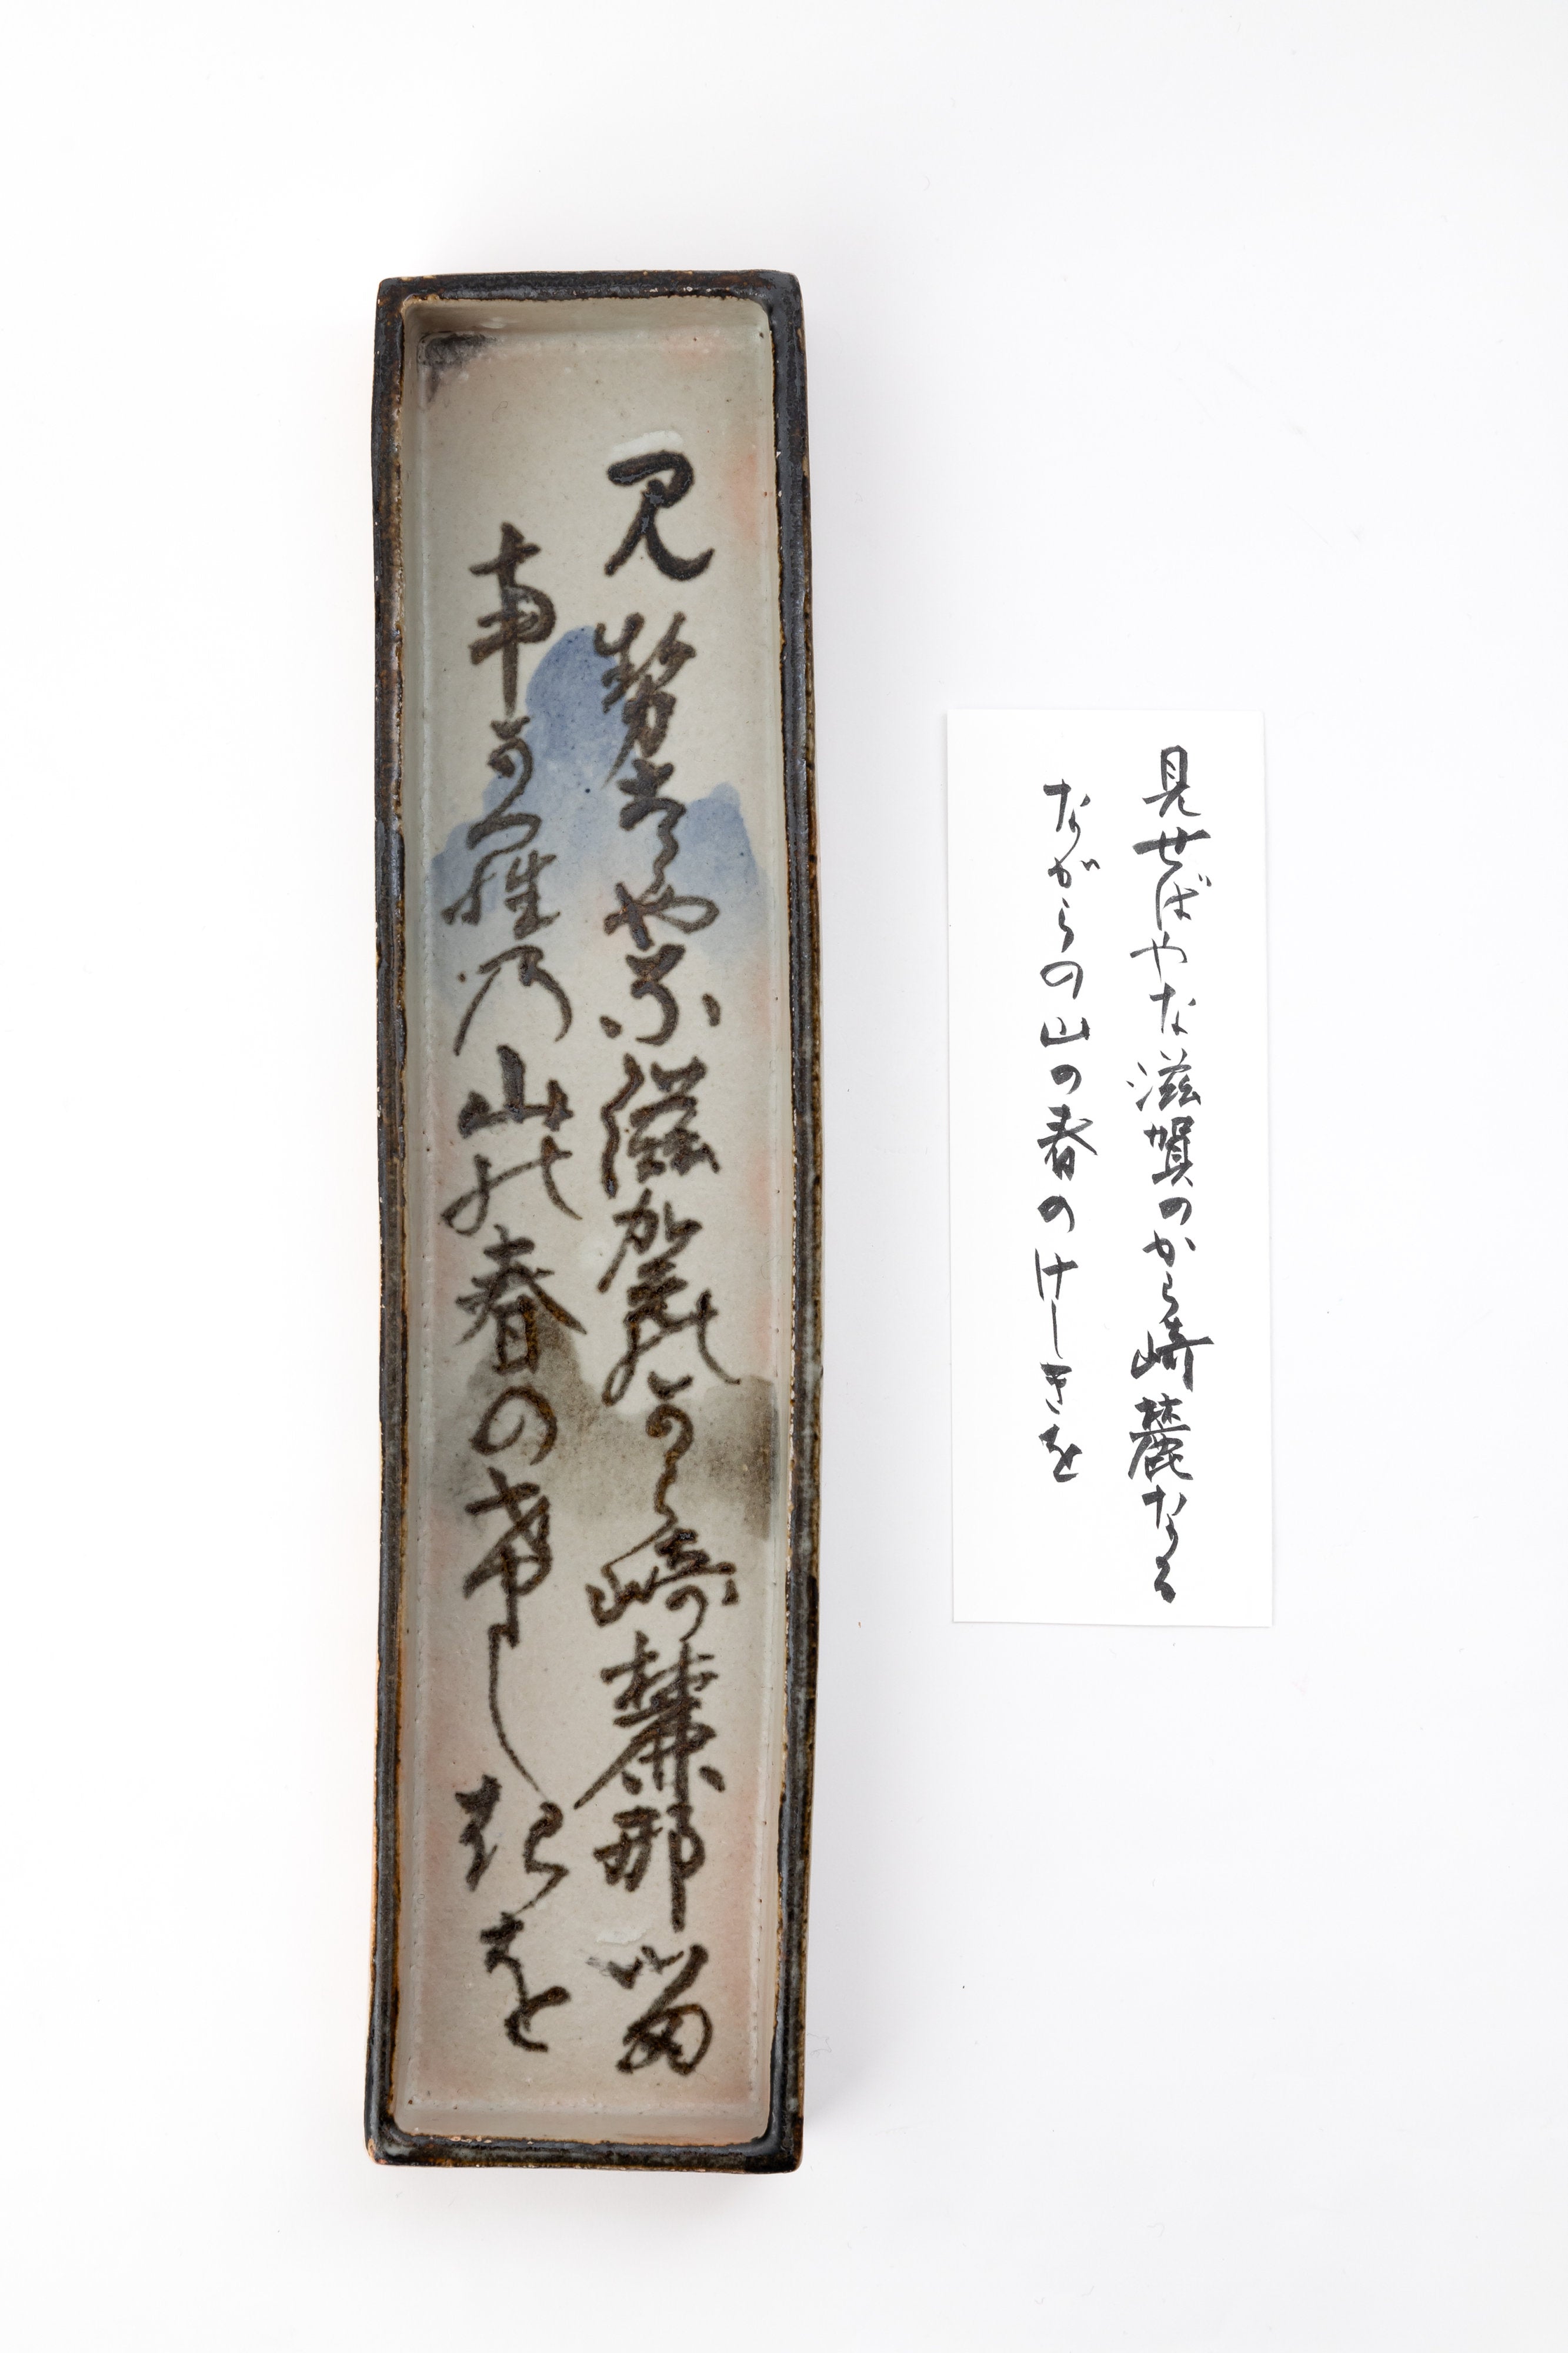 見勢者や奈滋賀能可ら崎麓那留
可羅乃山能春の希し起を
見せばやな滋賀のから崎麓なる
ながらの山の春のけしきを